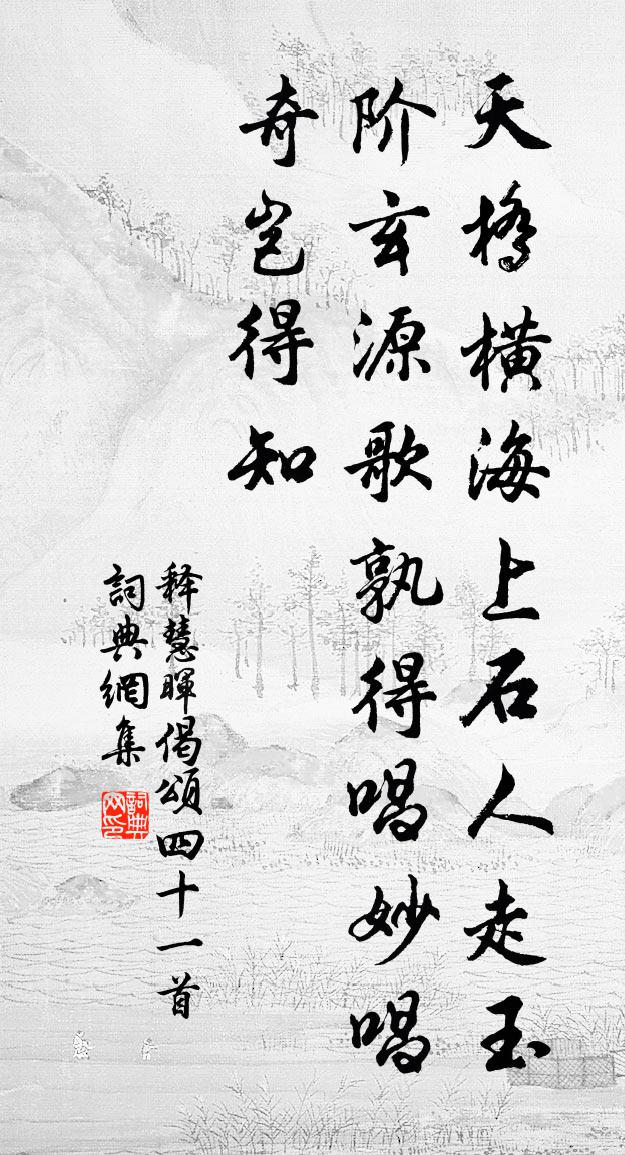 天桥横海上石人走玉
阶玄源歌孰得唱妙唱
奇岂得知
释慧暉偈頌四十一首
詞典網集
詞典网印